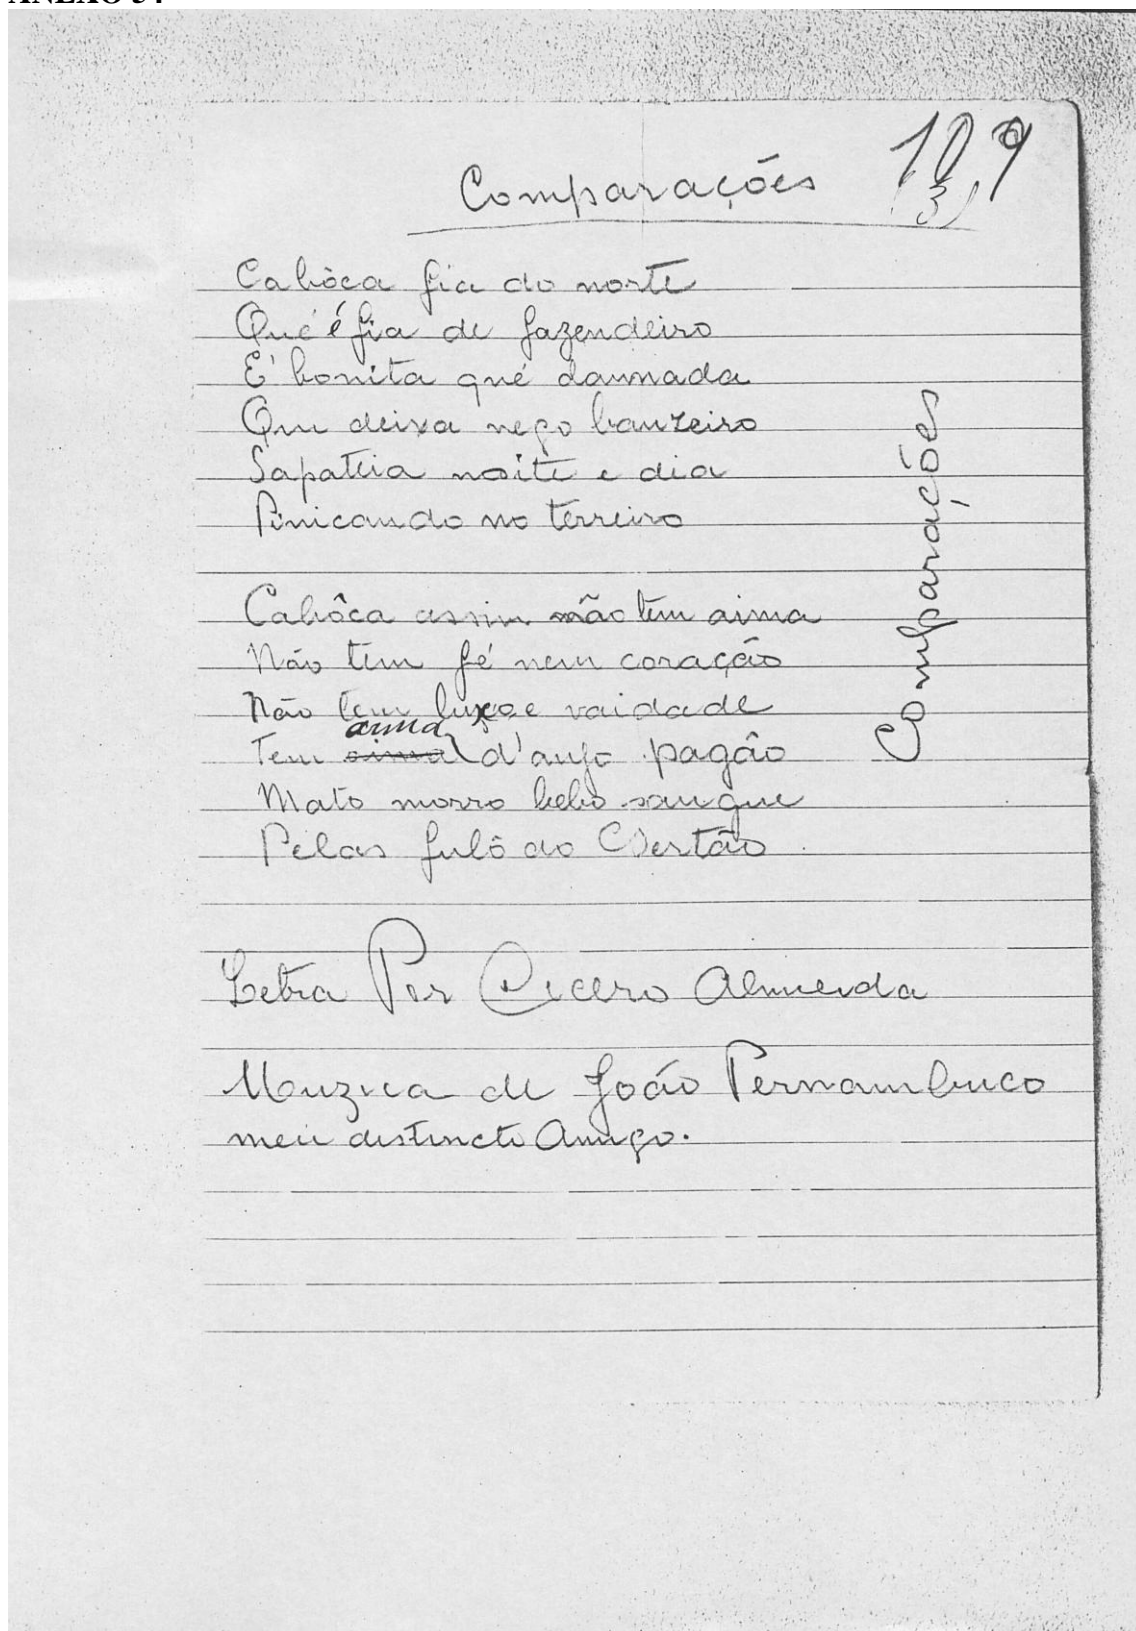 Comparações
Cabôca fia do norte
Qué é fia de fazendeiro
E' bonita qué damnada
Que deixa nego banzeiro
Sapateia noite e dia
Pinicando no terreiro
Cabôca assim não tem aima
Não tem fé nem coração
Não tem luxo e vaidade
Tem aima d'anjo pagão
Mato morro bebo sangue
Pelas fulô do Sertão
Comparações
Letra Por Cicero Almeida
Muzica de João Pernambuco
meu distincto Amigo.